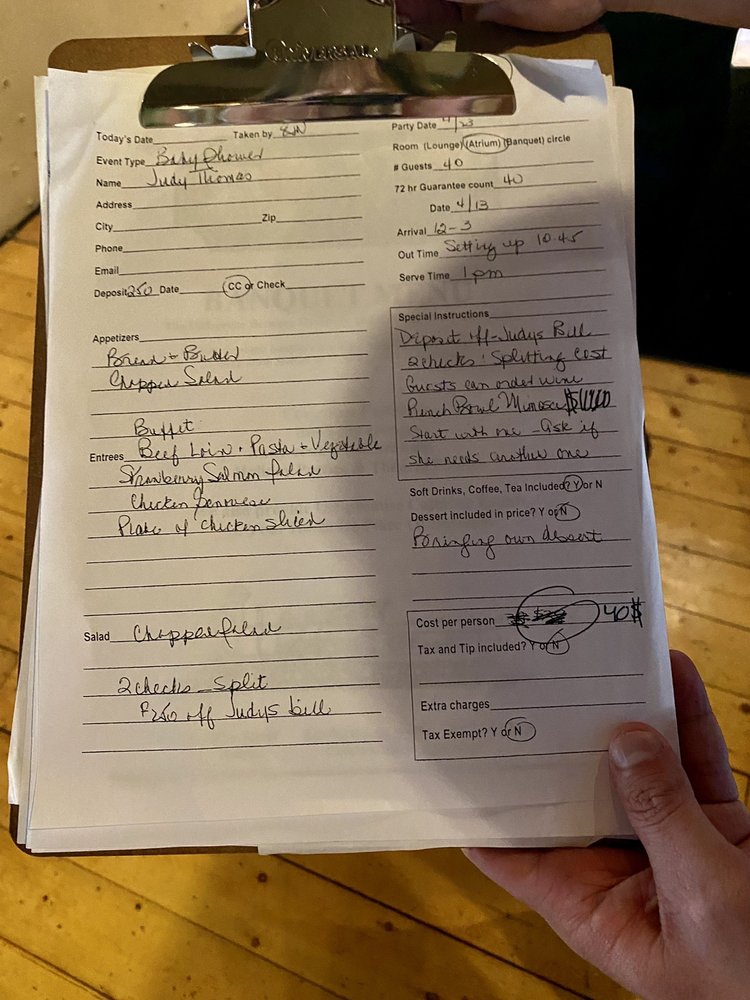 UNIVERSAL
Today's Date Taken by
Event Type Baby Shower
Name Judy Thomas
Address
City Zip
Phone
Email
Deposit 250 Date CC or Check
Appetizers
Bread + Butter
Chopped Salad
Buffet
Entrees Beef Loin + Pasta + Vegetable
Strawberry Salmon Salad
Chicken Genovese
Plate of chicken sliced
Salad Chopped Salad
2 checks - split
$250 off Judys bill
Party Date 4/23
Room (Lounge) (Atrium) (Banquet) circle
# Guests 40
72 hr Guarantee count 40
Date 4/13
Arrival 12-3
Out Time Setting up 10:45
Serve Time 1 pm
Special Instructions
Deposit off - Judys Bill
2 checks: Splitting Cost
Guests can order wine
Punch Bowl Mimosa
Start with one - Ask if
she needs another one
Soft Drinks, Coffee, Tea Included? Y or N
Dessert included in price? Y or N
Bringing own dessert
Cost per person 40$
Tax and Tip included? Y or N
Extra charges
Tax Exempt? Y or N